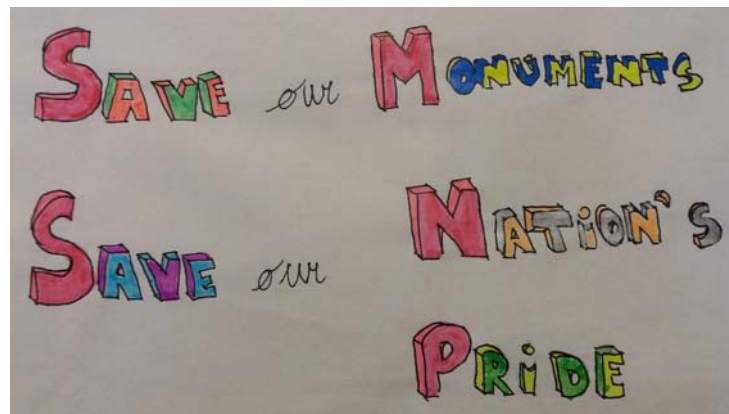 SAVE our MONUMENTS
SAVE our NATiON'S
PRiDE